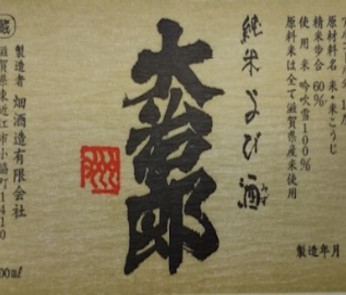 原材料名 米・米こうじ
精米歩合 60%
使用米 吟吹雪100%
原料米は全て滋賀県産米使用
製造年月
純米 よび酒
みず
大治郎
製造者 畑酒造有限会社
滋賀県東近江市小脇町1410